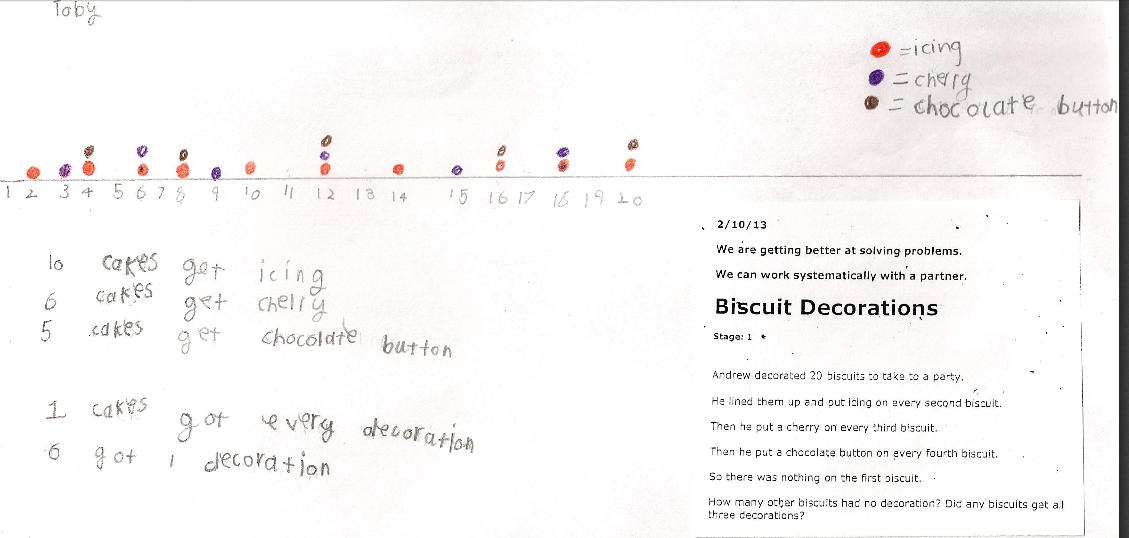 Toby
= icing
= cherry
= chocolate button
1 2 3 4 5 6 7 8 9 10 11 12 13 14 15 16 17 18 19 20
10 cakes get icing
6 cakes get cherry
5 cakes get chocolate button
1 cakes got every decoration
6 got 1 decoration
2/10/13
We are getting better at solving problems.
We can work systematically with a partner.
Biscuit Decorations
Stage: 1 ★
Andrew decorated 20 biscuits to take to a party.
He lined them up and put icing on every second biscuit.
Then he put a cherry on every third biscuit.
Then he put a chocolate button on every fourth biscuit.
So there was nothing on the first biscuit.
How many other biscuits had no decoration? Did any biscuits get all
three decorations?